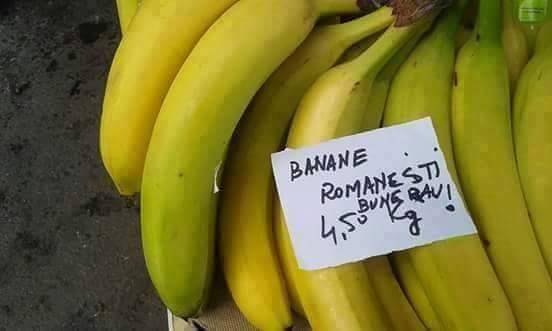 BANANE
ROMANEȘTI
BUNE RAU!
4,50 Kg